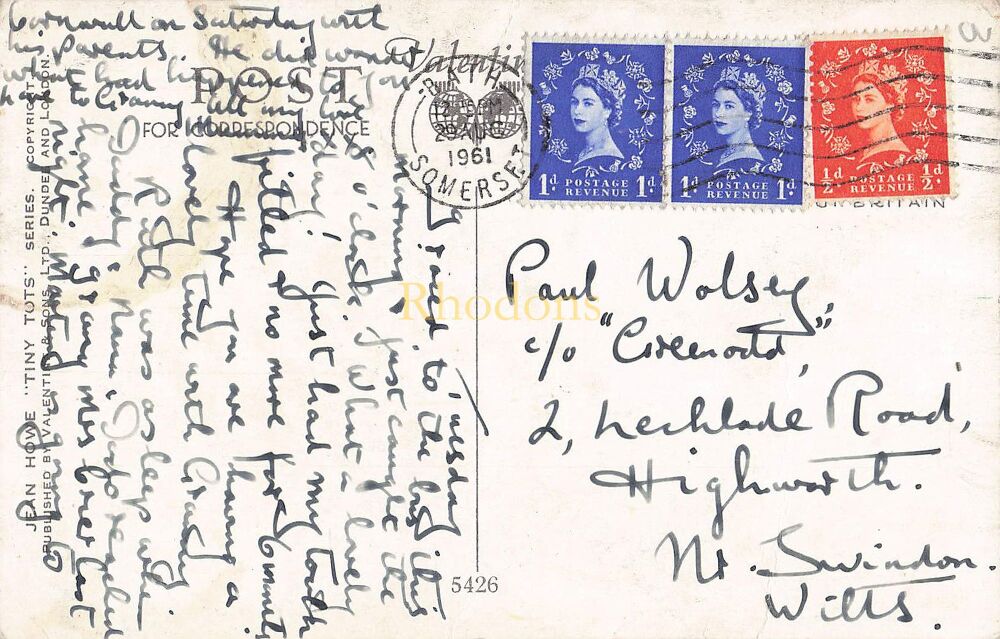 Valentine's
POST
FOR CORRESPONDENCE
BATH
12.15 PM
29 AUG
1961
SOMERSET
1d. POSTAGE REVENUE 1d.
1d. POSTAGE REVENUE 1d.
½d. POSTAGE REVENUE ½d.
BRITAIN
Paul Wolsey,
c/o "Greenodd",
2, Lechlade Road,
Highworth.
Nr. Swindon.
Wilts.
5426
Rhodons
JEAN HOWE "TINY TOTS" SERIES. COPYRIGHT.
PUBLISHED BY VALENTINE & SONS LTD., DUNDEE AND LONDON.
Tuesday
I had to the bus this
morning, & just caught the
o'clock. What a lovely
day! Just had my tooth
filled & no more for 6 months
Hope you are having a
lovely time with Granny
Ruth was asleep when
Daddy & Nana & I reached
home & granny Mrs last
night. Martin is going to
Cornwall on Saturday with
his Parents. He did wonder
what had happened to you
to Granny all my love
xxxx